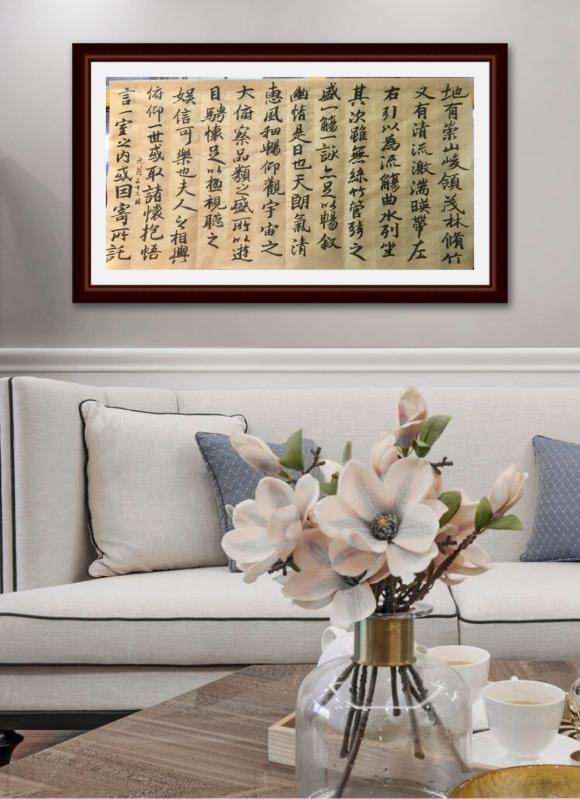 地有崇山峻領茂林脩竹
又有清流激湍暎帶左
右引以為流觴曲水列坐
其次雖無絲竹管弦之
盛一觴一詠亦足以暢叙
幽情是日也天朗氣清
惠風和暢仰觀宇宙之
大俯察品類之盛所以遊
目騁懷足以極視聽之
娛信可樂也夫人之相與
俯仰一世或取諸懷抱悟
言一室之内或因寄所託